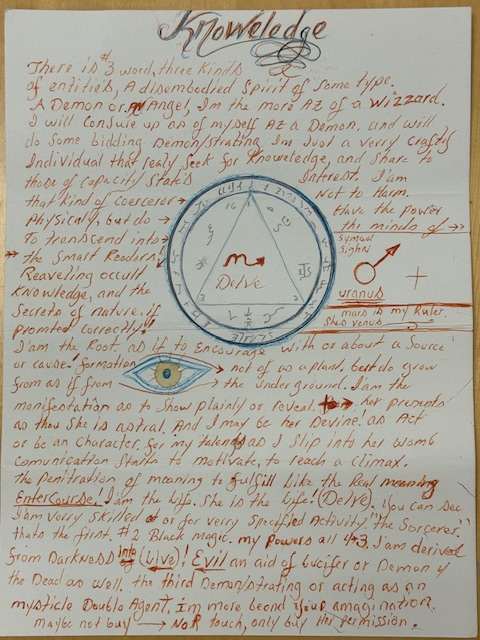 Knoweledge
There is #3 word, three Kinds
of entities, A disembodied Spirit of some type.
A Demon or, Angel, I'm the more AZ of a Wizzard.
I will Consure up as of myself AZ a Demon. and will
do some bidding Demon/strating I'm Just a verry crafty
Individual that realy Seek for Knowledge, and share to
those of capacity State's Interest. I am
that Kind of Coercerer Not to Harm.
Physically, but do Have the power
To transcend into the minds of
the Smart Readers. symbol
Reaveling occult sighn
Knowledge, and the uranus
Secrets of nature. if mars is my Ruler.
promted correctly! She's venus
Delve
I'am the Root, as if to Encourage with or about a Source
or cause! formation not of as a plant, best do grow
from as if from the under ground. I am the
manifestation as to Show plainly or reveal. her presents
as thow She is astral. And I may be her Devine! as Act
or be an Character, for my talents as I Slip into her womb
Comunication Starts to motivate, to reach a Climax.
The Penitration of meaning to fulfill Like the Real meaning
EnterCourse! I am the life. She is the life! (Delve) you can see
I am verry skilled at or for verry Specified Activity "The Sorcerer."
thats the first. #2 Black magic. my Powers all 4+3. I am derived
from Darkness into (Live)! Evil an aid of Lucifer or Demon of
the Dead as well. the third Demon/strating or acting as an
mysticle Double Agent. I'm more beond your amagination.
maybe not buy → NoR touch, only buy Her permission.